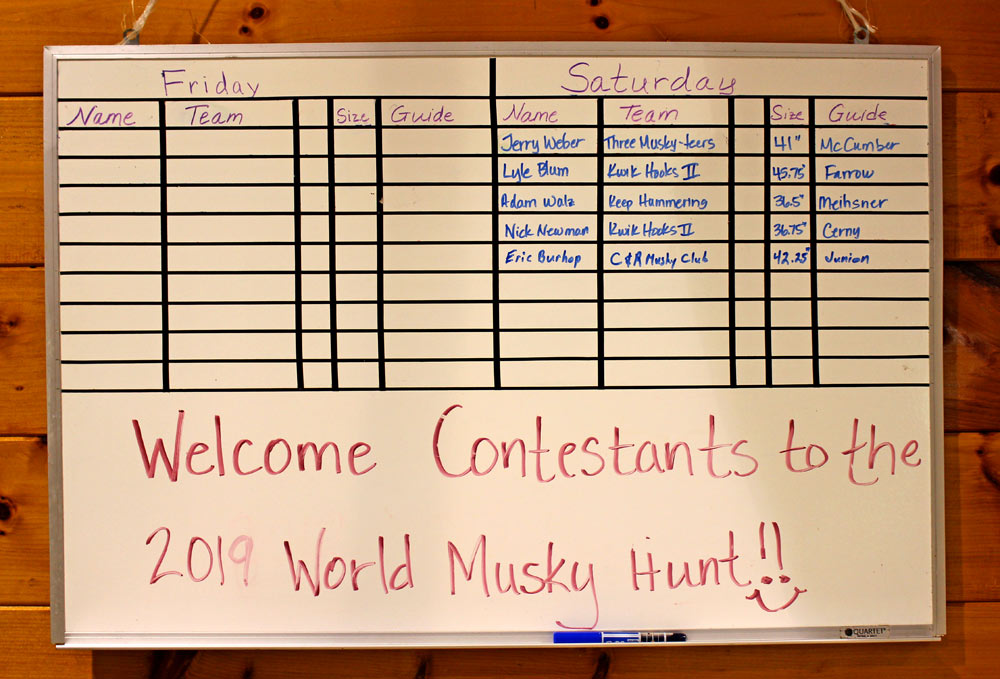 Friday Saturday
Name Team Size Guide Name Team Size Guide
Jerry Weber Three Musky-teers 41" McCumber
Lyle Blum Kwik Hooks II 45.75" Farrow
Adam Walz Keep Hammering 36.5" Meihsner
Nick Newman Kwik Hooks II 36.75" Cerny
Eric Burhop C & R Musky Club 42.25" Junion
Welcome Contestants to the
2019 World Musky Hunt!!
QUARTET